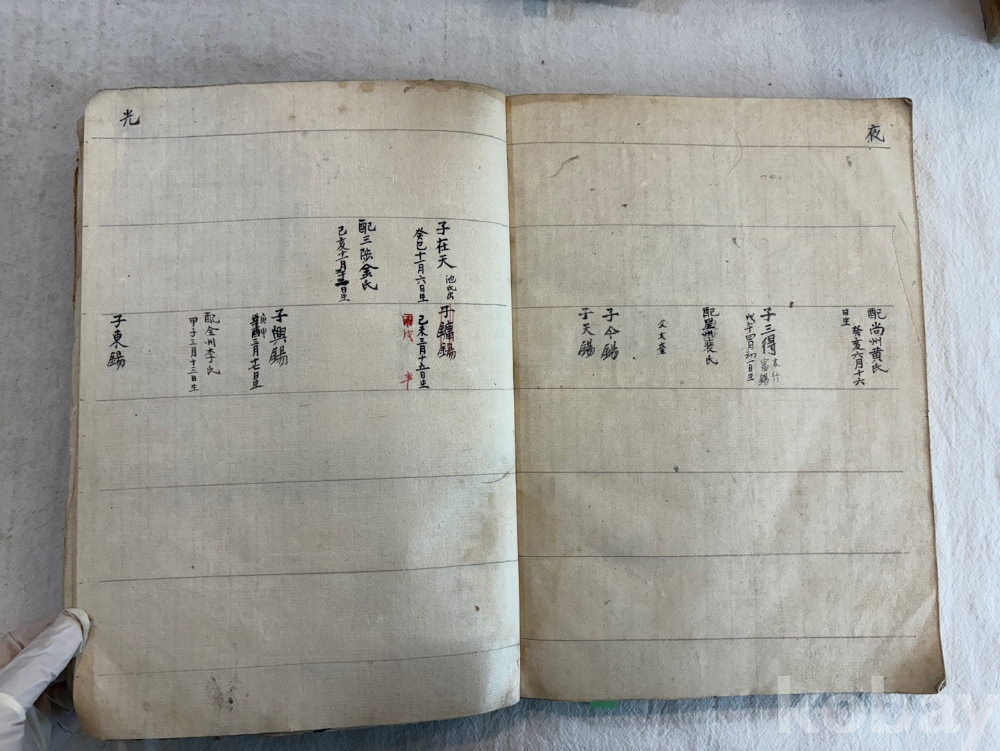 夜
配尚州黃氏
癸亥六月十六
日生
子三得
富錫
戊午四月初一日生
配星州裵氏
父文奎
子今錫
子天錫
光
子在天
癸巳十一月六日生
配三陟金氏
己亥十一月
日生
子鏞錫
己未三月十五日生
戌
卒
子興錫
庚申
三月十七日生
配全州李氏
甲子三月十三日生
子東錫
kobay